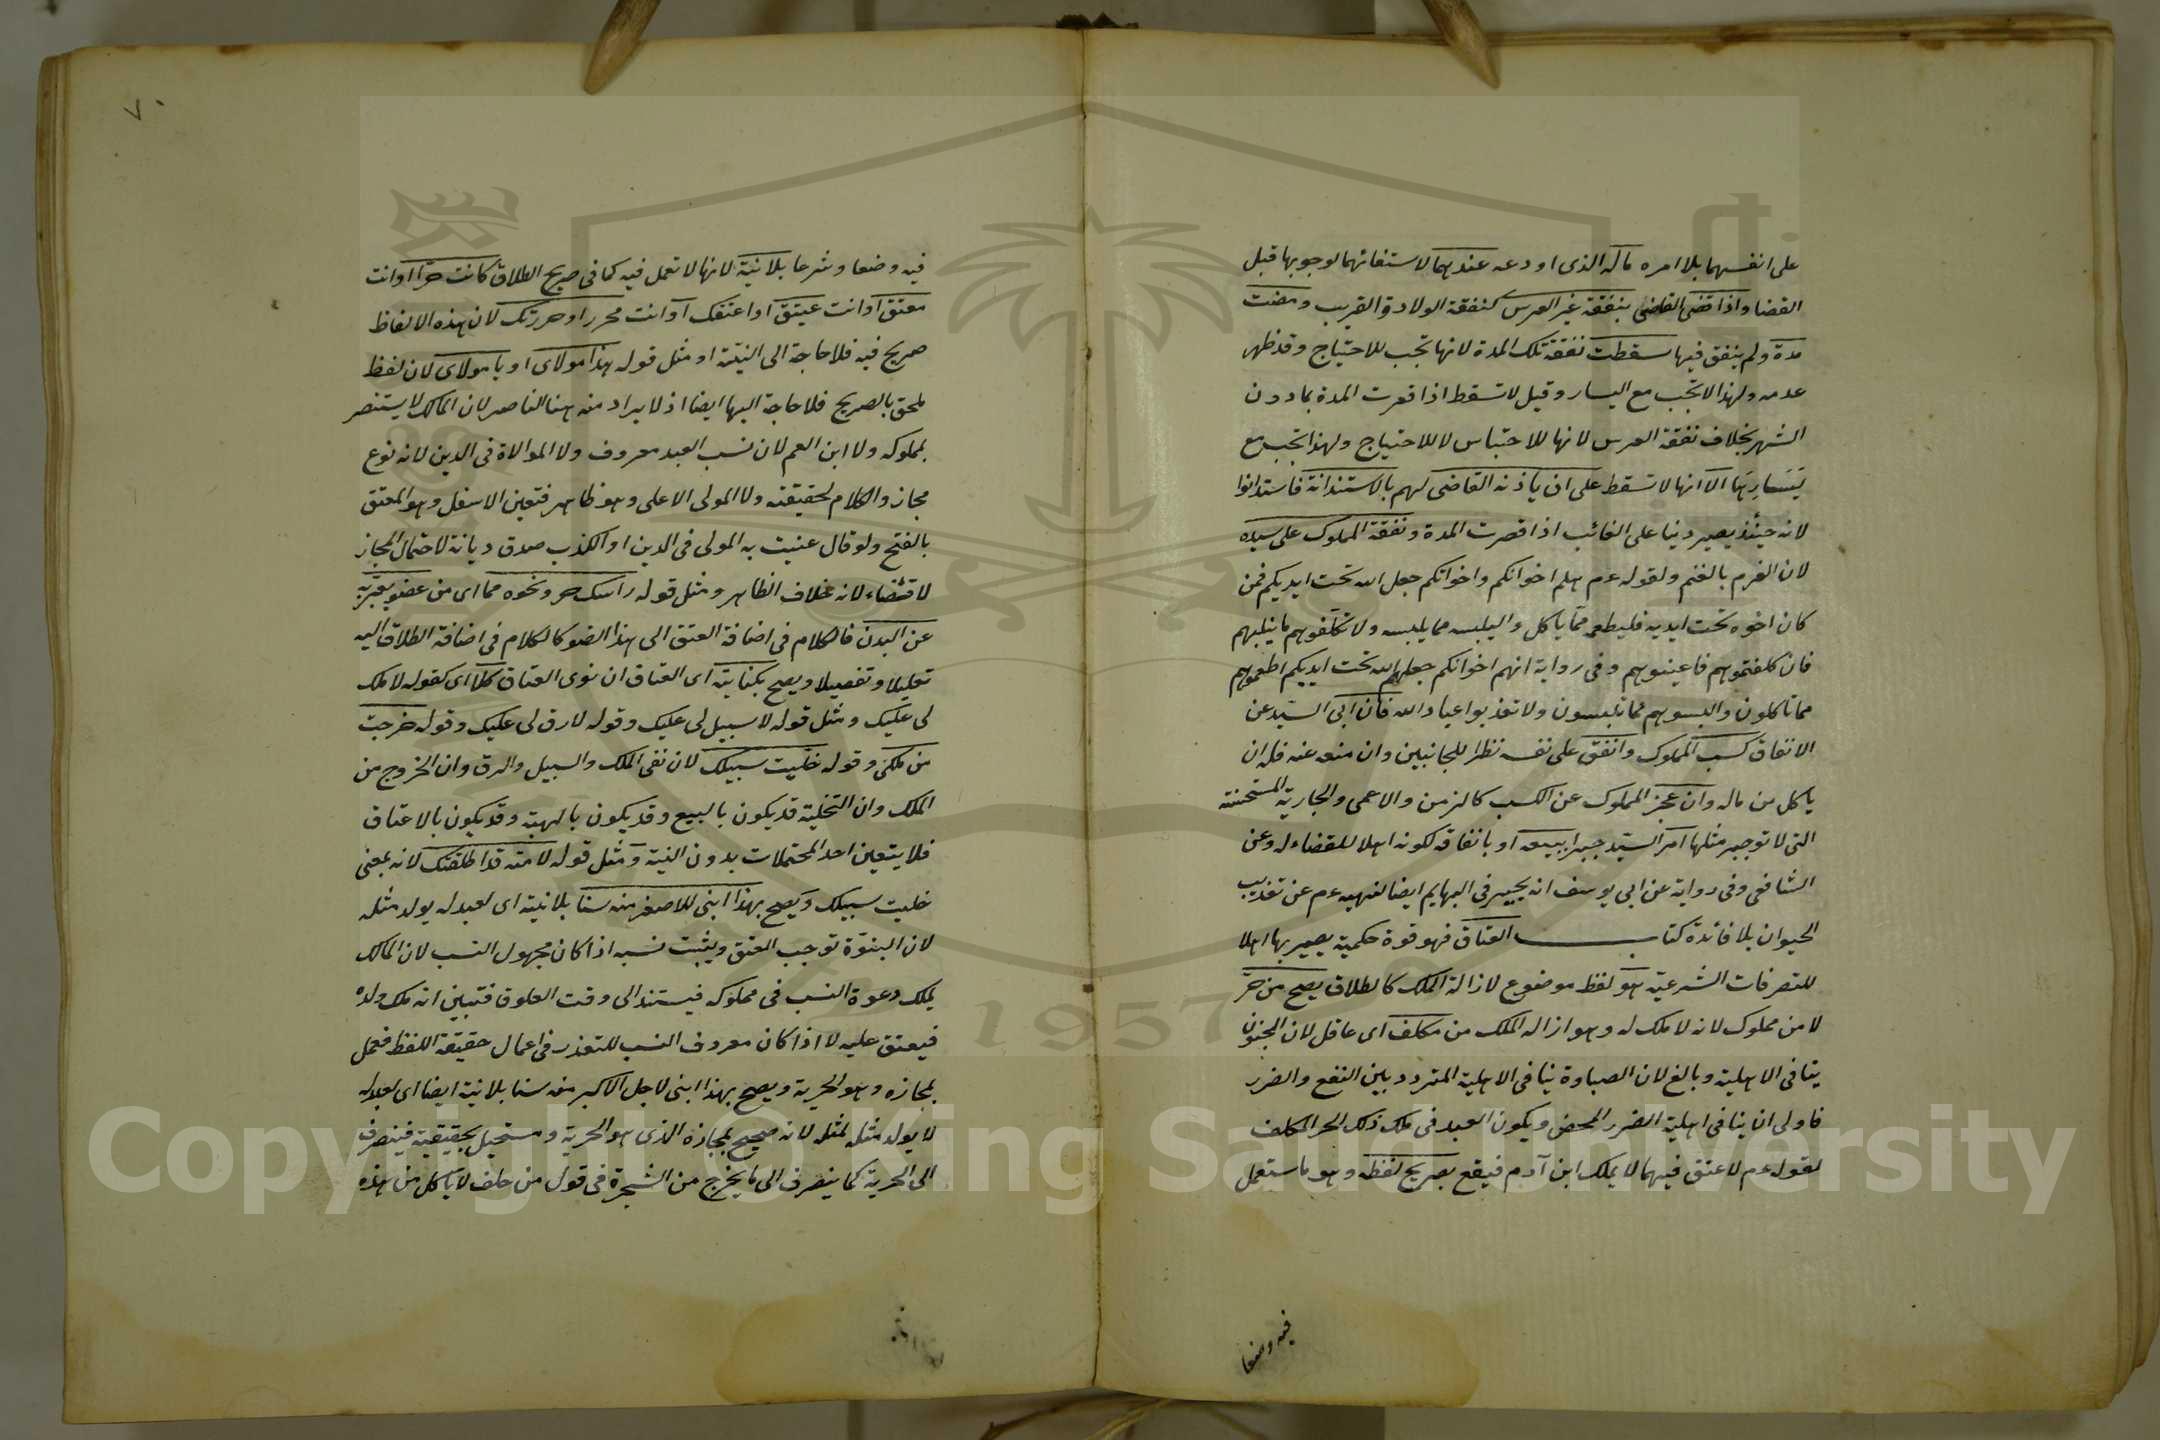 على انفسهما بلا امره ماله الذى اودعه عندهما لاستغنائهما لوجوبها قبل
القضا واذا قضى القاضى بنفقة غير العرس كنفقة الولاد والقريب ومضت
مدة ولم ينفق فيها سقطت نفقة تلك المدة لانها تجب للاحتياج وقد ظهر
عدمه ولهذا لا تجب مع اليسار وقيل لا تسقط اذا قصرت المدة بما دون
الشهر بخلاف نفقة العرس لانها للاحتباس لا للاحتياج ولهذا تجب مع
يَسَارِهَا الا انها لا تسقط على ان ياذنه القاضى لهم بالاستدانة فاستدانوا
لانه حينئذ يصير دينا على الغائب اذا قصرت المدة ونفقة المملوك على سيده
لان الغرم بالغنم ولقوله عم هلم اخوانكم واخواتكم جعل الله تحت ايديكم فمن
كان اخوه تحت ايديه فليطعمه مما ياكل واليلبسه مما يلبسه ولا تكلفوهم ما يغلبهم
فان كلفتموهم فاعينوهم وفى رواية انهم اخوانكم جعلهم الله تحت ايديكم اطعموهم
مما تاكلون والبسوهم مما تلبسون ولا تعذبوا عباد الله فان ابى السيد عن
الانفاق كسب المملوك وانفق على نفسه نظرا للجانبين وان منعه عنه فله ان
ياكل من ماله وان عجز المملوك عن الكسب كالزمن والاعمى والجارية المستحسنة
التى لا توجر مثلها امر السيد جبرا ببيعه او بانفاقه لكونه اهلا للقضاء له وعن
الشافعى وفى رواية عن ابى يوسف انه يجبر فى البهايم ايضا لنهيه عم عن تعذيب
الحيوان بلا فائدة كتاب العتاق فهو قوة حكمية يصير بها اهلا
للتصرفات الشرعية هو لفظ موضوع لازالة الملك كالطلاق يصح من حر
لا من مملوك لانه لا ملك له وهو ازاله الملك من مكلف اى عاقل لان الجنون
ينافى الاهلية وبالغ لان الصباوة ينافى الاهلية المتردد بين النفع والضرر
فاولى ان ينافى اهلية الضرر المحض ويكون العبد فى ملك ذلك الحر المكلف
لقوله عم لا عتق فيما لا يملك ابن آدم فيقع بصريح لفظه وهو ما ستعمل
فيه وضعا
٧٠
فيه وضعا وشرعا بلا نية لانها لا تعمل فيه كما فى صريح الطلاق كانت حرّ اوانت
معتق اوانت عتيق او اعتقتك او انت محرر او حررتك لان هذه الالفاظ
صريح فيه فلا حاجة الى النيّة او مثل قوله هذا مولاى او يا مولاى لان لفظ
ملحق بالصريح فلا حاجة اليها ايضا اذ لا يراد منه هنا الناصر لان المالك لا يستنصر
بمملوكه ولا ابن العم لان نسب العبد معروف ولا الموالاة فى الدين لانه نوع
مجاز والكلام لحقيقته ولا المولى الاعلى وهو ظاهر فتعين الاسفل وهو المعتق
بالفتح ولو قال عنيت به المولى فى الدين او الكذب صدق ديانة لاحتمال المجاز
لا قضاء لانه خلاف الظاهر ومثل قوله راسك حر ونحوه مما اى من عضو يعبّر به
عن البدن فالكلام فى اضافة العتق الى هذا العضو كالكلام فى اضافة الطلاق اليه
تعليلا وتفصيلا ويصح بكنايته اى العتاق ان نوى العتاق كلّا اى كقوله لا ملك
لى عليك ومثل قوله لا سبيل لى عليك وقوله لا رق لى عليك وقوله خرجت
من ملكى وقوله خليت سبيلك لان نفى الملك والسبيل والرق وان الخروج من
الملك وان التخلية قد يكون بالبيع وقد يكون بالهبة وقد يكون بالاعتاق
فلا يتعين احد المحتملات بدون النية ومثل قوله لامته قد اطلقتك لانه بمعنى
خليت سبيلك ويصح بهذا ابنى للاصغر منه سنا بلا نية اى لعبد له يولد مثله
لان البنوّة توجب العتق ويثبت نسبه اذا كان مجهول النسب لان المالك
يملك دعوة النسب فى مملوكه فيستند الى وقت العلوق فتبين انه ملك ولده
فيعتق عليه لا اذا كان معروف النسب للتعذر فى اعمال حقيقة اللفظ فعمل
بمجازه وهو الحرية ويصح بهذا ابنى لاجل الاكبر منه سنا بلا نية ايضا اى لعبد له
لا يولد مثله لمثله لانه صحيح بمجازه الذى هو الحرية ومستحيل بحقيقية فينصرف
الى الحرية كما ينصرف الى ما يخرج من الشجرة فى قول من حلف لا ياكل من هذه
1957
Copyright © King Saud University